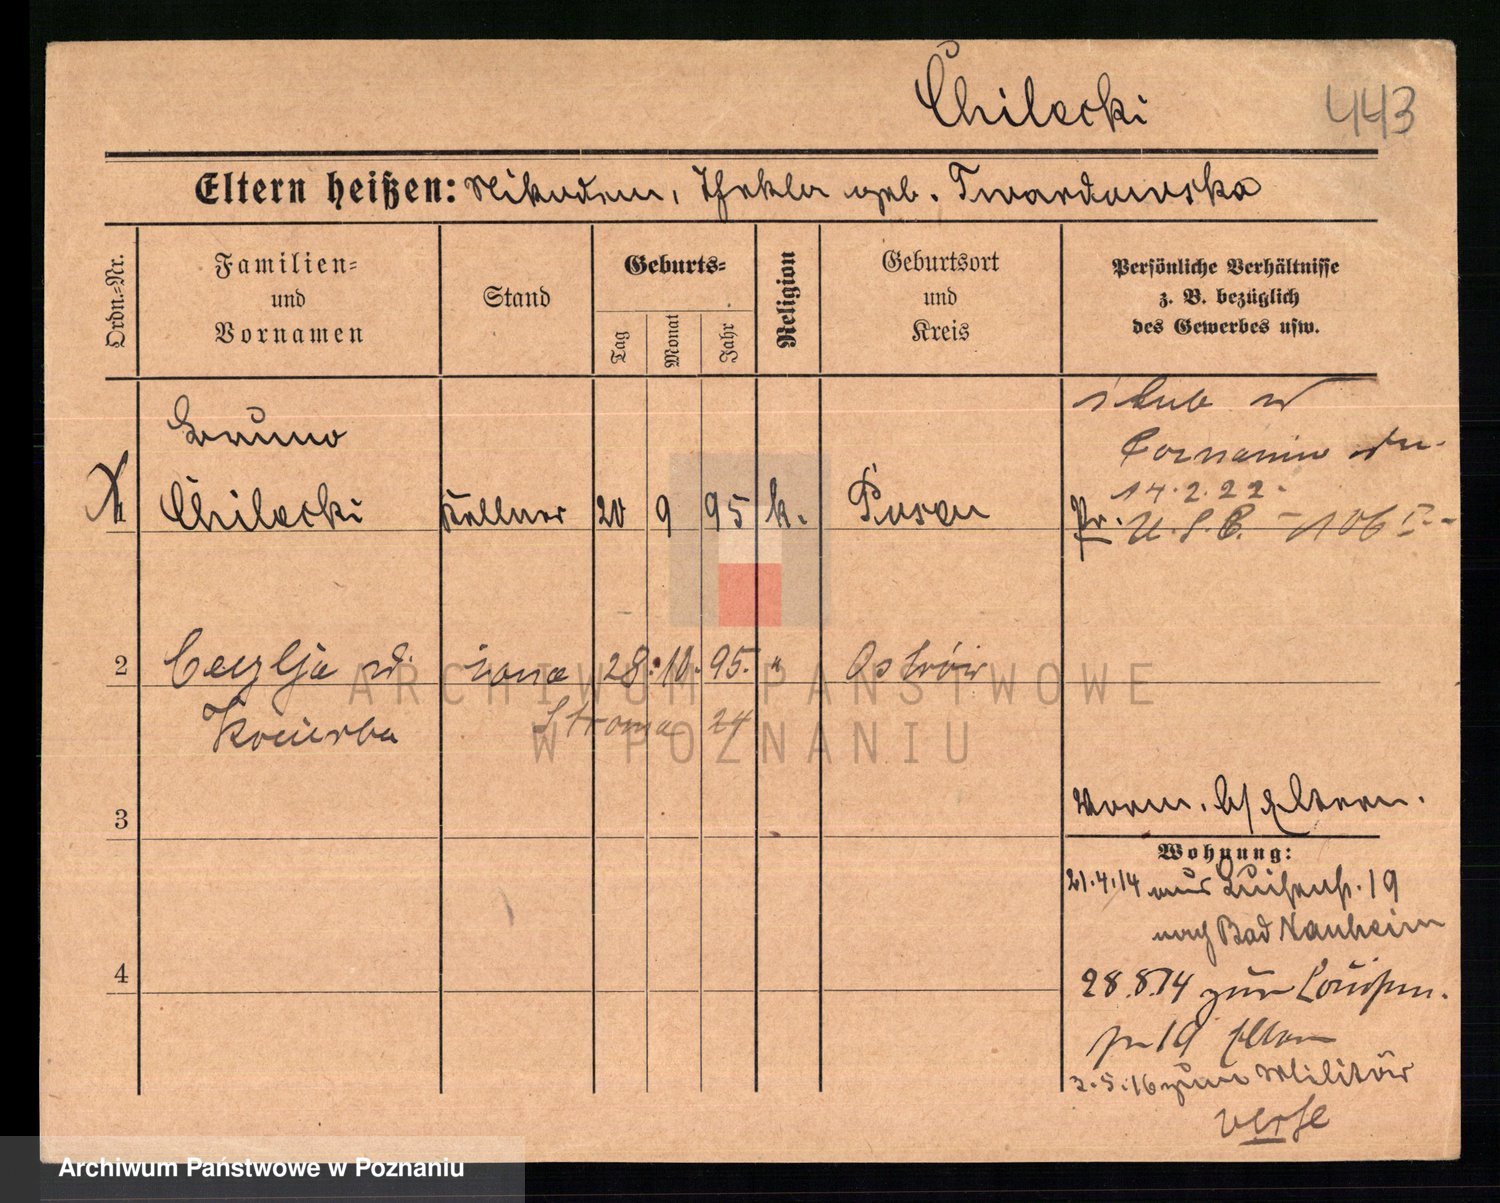 Chilecki 443
Eltern heißen: Nikodem, Thekla geb. Twardowska
Ordn.-Nr.
Familien-
und
Vornamen
Stand
Geburts-
Tag
Monat
Jahr
Religion
Geburtsort
und
Kreis
Persönliche Verhältnisse
z. B. bezüglich
des Gewerbes usw.
Bruno
Chilecki Kellner 20 9 95 k. Posen
ślub w
Poznaniu
14.2.22.
Pr. U.S.C. 106
2 Cecylja ż. żona 28. 10. 95. " Ostrów
Stroma 24
3
Vorm. b/ Eltern.
Wohnung:
21.4.14 aus Luisenstr. 19
nach Bad Nauheim
4
28.8.14 zur Louisen.
str 19 Eltern
3.5.16 zum Militär
verse
ARCHIWUM PAŃSTWOWE
W POZNANIU
Archiwum Państwowe w Poznaniu